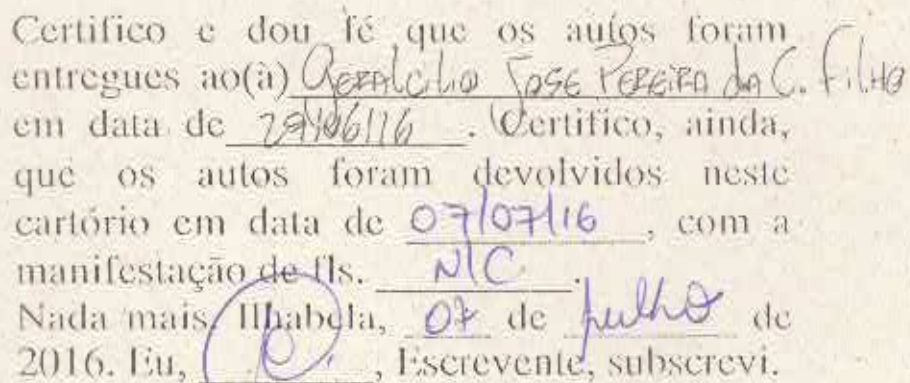 Certifico e dou fé que os autos foram
entregues ao(à) José Pereira da C. Filho
em data de /06/16. Certifico, ainda,
que os autos foram devolvidos neste
cartório em data de 07/07/16, com a
manifestação de fls. N/C.
Nada mais. Ilhabela, 07 de julho de
2016. Eu, , Escrevente, subscrevi.